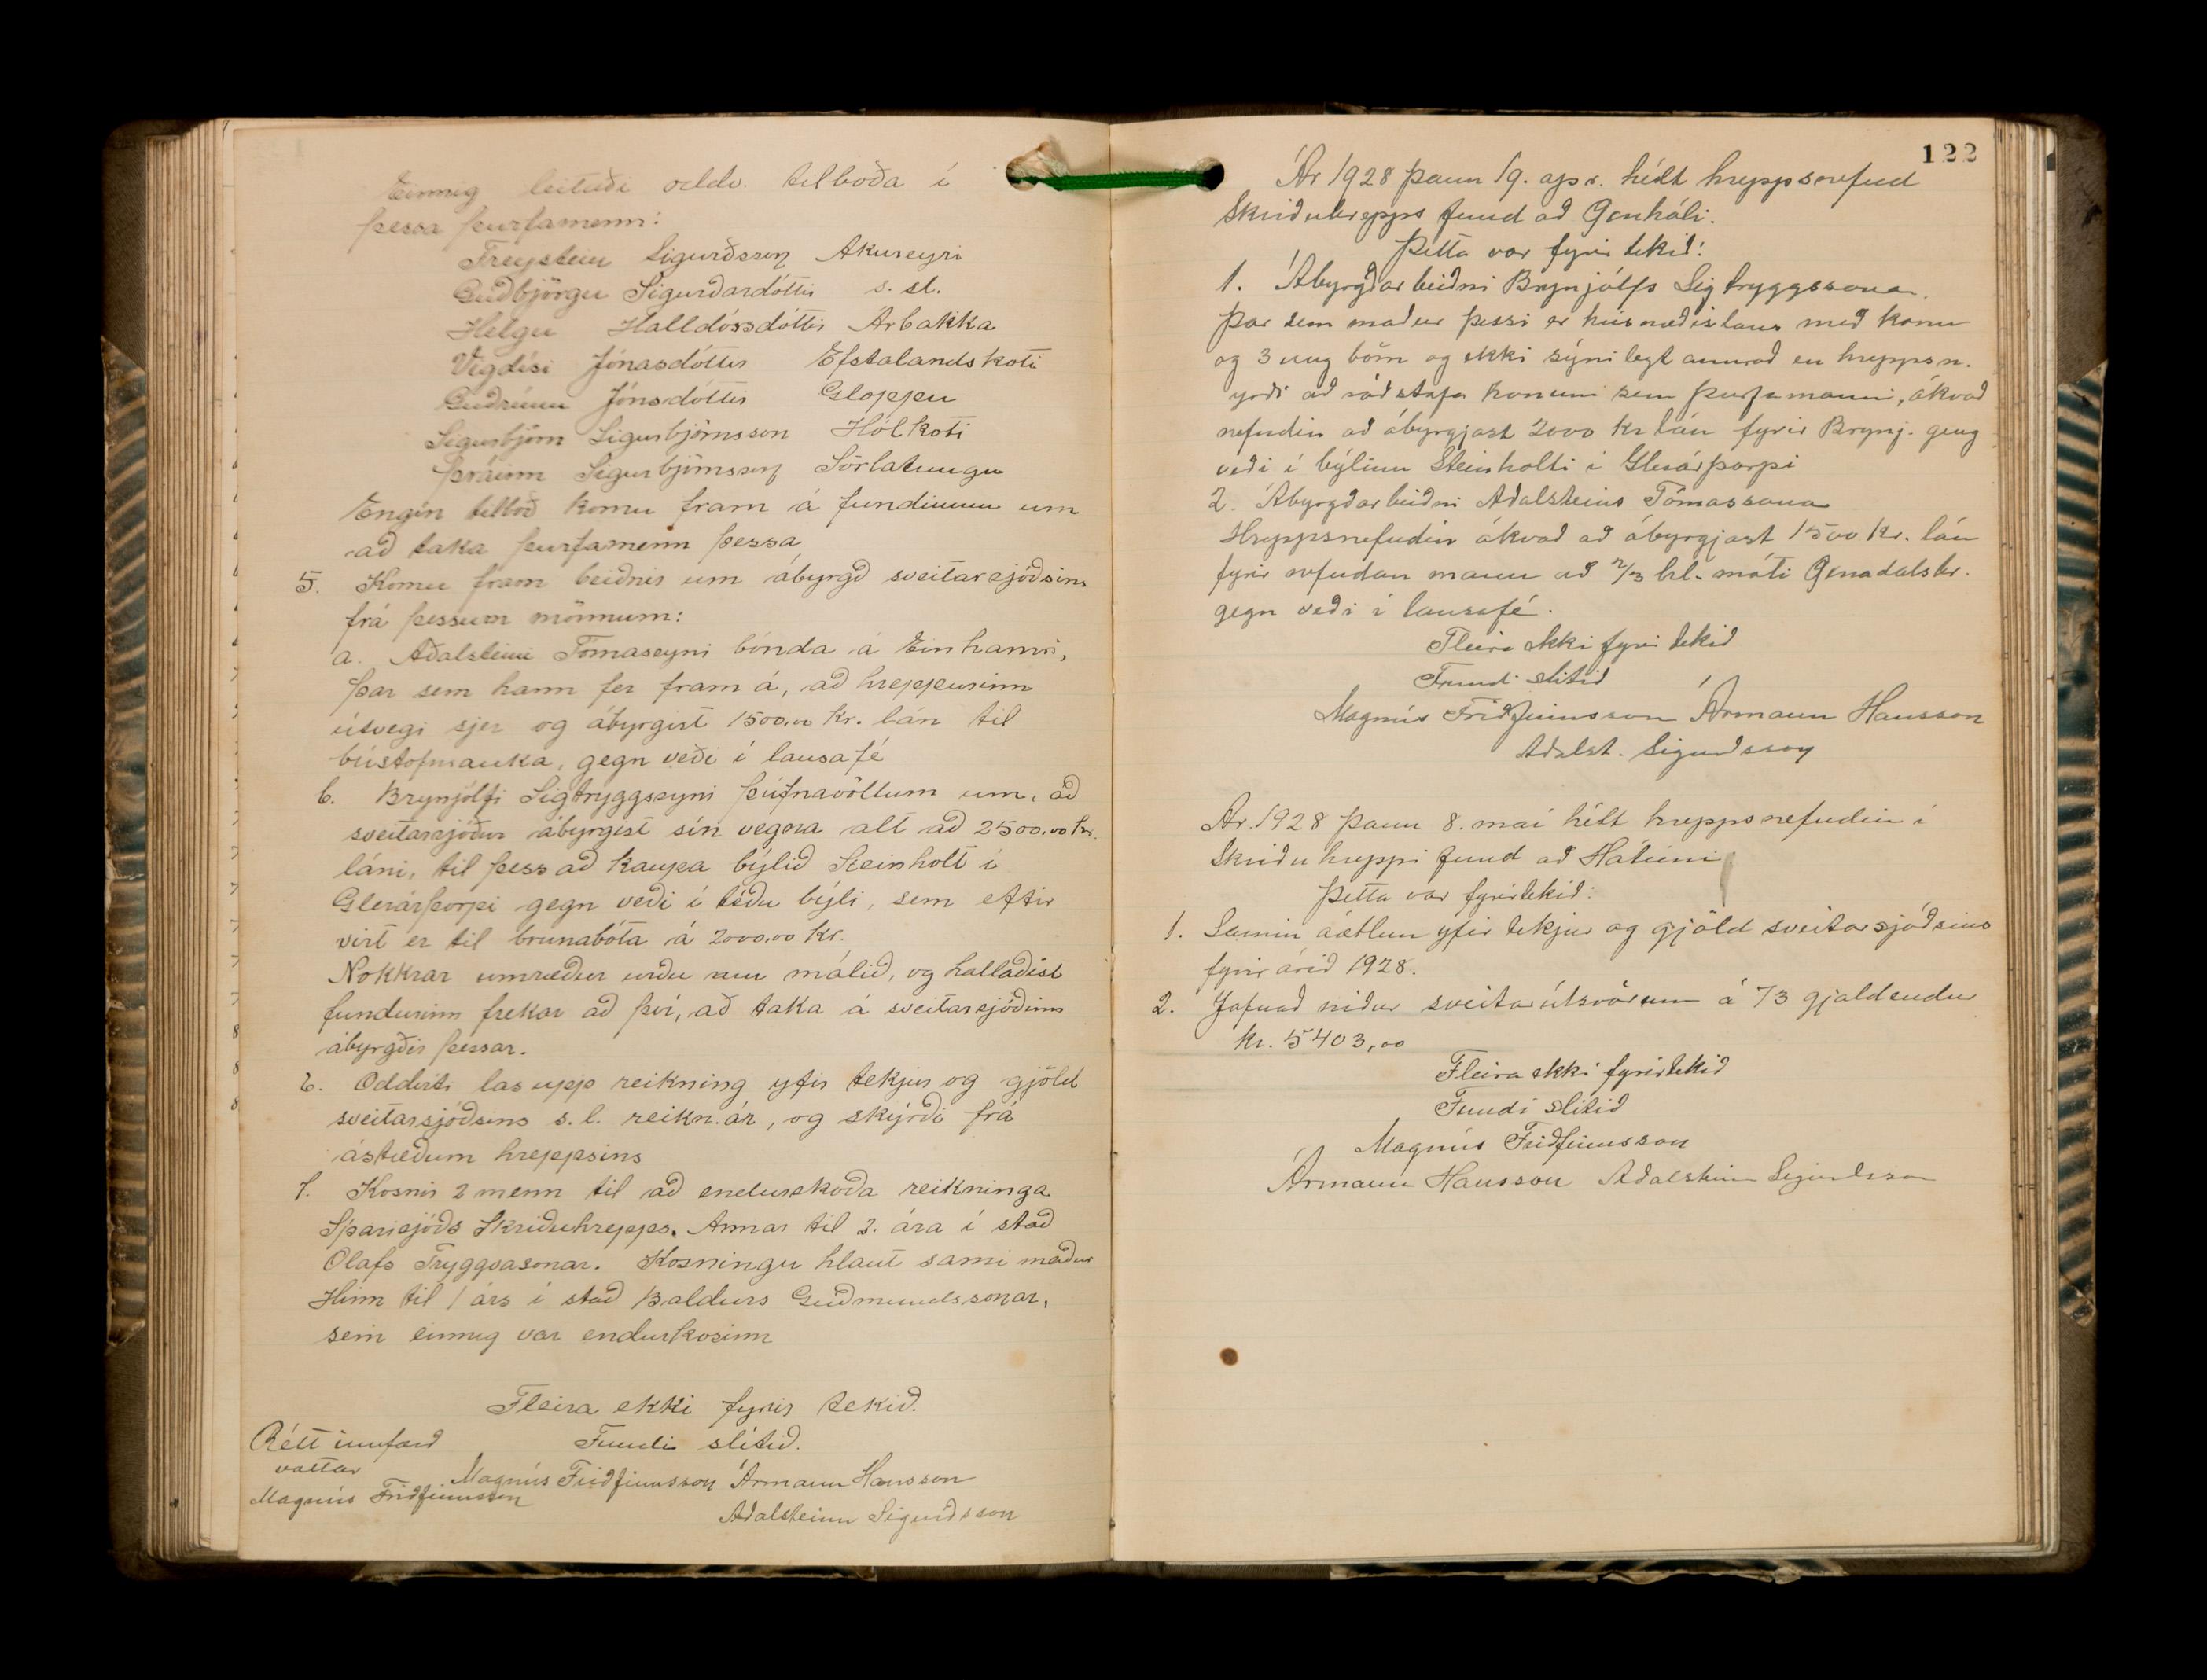 Einnig leitaði oddv. tilboða í
þessa þurfamenn:
Freystein Sigurðsson Akureyri
Guðbjörgu Sigurðardóttir s. st.
Helgu Halldórsdóttir Árbakka
Vigdísi Jónasdóttir Efstalandskoti
Guðrúnu Jónsdóttir Gloppu
Sigurbjörn Sigurbjörnsson Hólkoti
Þráinn Sigurbjörnsson Sörlatungu
Engin tilboð komu fram á fundinum um
að taka þurfamenn þessa
5. Komu fram beiðnir um ábyrgð sveitarsjóðsins
frá þessum mönnum:
a. Aðalsteini Tómassyni bónda á Einhamri,
þar sem hann fer fram á, að hreppurinn
útvegi sjer og ábyrgist 1500,00 kr. lán til
bústofnsauka, gegn veði í lausafé
b. Brynjólfi Sigtryggssyni Þúfnavöllum um, að
sveitarsjóður ábyrgist sín vegna alt að 2500,00 kr.
láni, til þess að kaupa býlið Steinholt í
Glerárþorpi gegn veði í téðu býli, sem eftir
virt er til brunabóta á 2000,00 kr.
Nokkrar umræður urðu um málið, og hallaðist
fundurinn frekar að því, að taka á sveitarsjóðinn
ábyrgðir þessar.
6. Oddviti las upp reikning yfir tekjur og gjöld
sveitarsjóðsins s.l. reikn. ár, og skýrði frá
ástæðum hreppsins
7. Kosnir 2 menn til að endurskoða reikninga
Sparisjóðs Skriðuhrepps. Annar til 2. ára í stað
Ólafs Tryggvasonar. Kosningu hlaut sami maður
Hinn til 1 árs í stað Baldurs Guðmundssonar,
sem einnig var endurkosinn
Fleira ekki fyrir tekið.
Fundi slitið.
Rétt innfærð
vottar
Magnús Friðfinnsson
Magnús Friðfinnsson Ármann Hansson
Aðalsteinn Sigurðsson
122
Ár 1928 þann 19. apr. hélt hreppsnefnd
Skriðuhrepps fund að
Þetta var fyrir tekið:
1. Ábyrgðarbeiðni Brynjólfs Sigtryggssona.
Þar sem maður þessi er húsnæðislaus með konu
og 3 ung börn og ekki sýnilegt annað en hreppsn.
yrði að ráðstafa honum sem þurfamanni, ákvað
nefndin að ábyrgjast 2000 kr lán fyrir Brynj. geng
veði í býlinu Steinholti í Glerárþorpi
2. Ábyrgðarbeiðni Aðalsteins Tómassona
Hreppsnefndin ákvað að ábyrgjast 1500 kr. lán
fyrir nefndan mann að 2/3 hl. móti
gegn veði í lausafé.
Fleira ekki fyrir tekið
Fundi slitið
Magnús Friðfinnsson Ármann Hansson
Aðalst. Sigurðsson
Ár 1928 þann 8. maí hélt hreppsnefndin í
Skriðuhreppi fund að Hátúni
Þetta var fyrirtekið:
1. Samin áætlun yfir tekjur og gjöld sveitarsjóðsins
fyrir árið 1928.
2. Jafnað niður sveitarútsvörum á 73 gjaldendur
kr. 5403,00
Fleira ekki fyrirtekið
Fundi slitið
Magnús Friðfinnsson
Ármann Hansson Aðalsteinn Sigurðsson